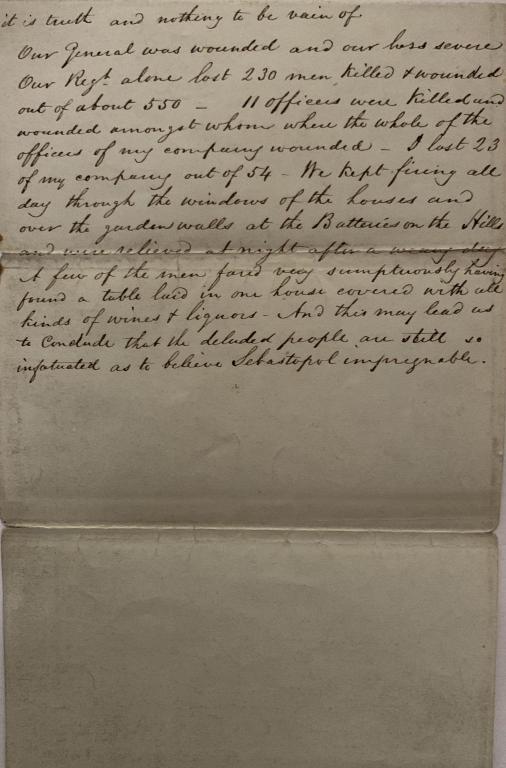 it is truth and nothing to be vain of
Our General was wounded and our loss severe
Our Regt. alone lost 230 men killed & wounded
out of about 550 – 11 officers were killed and
wounded amongst whom where the whole of the
officers of my company wounded – I lost 23
of my company out of 54 – We kept firing all
day through the windows of the houses and
over the garden walls at the Batteries on the Hills
and were relieved at night after a weary day
A few of the men fared very sumptuously having
found a table laid in one house covered with all
kinds of wines & liquors – And this may lead us
to conclude that the deluded people are still so
infatuated as to believe Sebastopol impregnable.